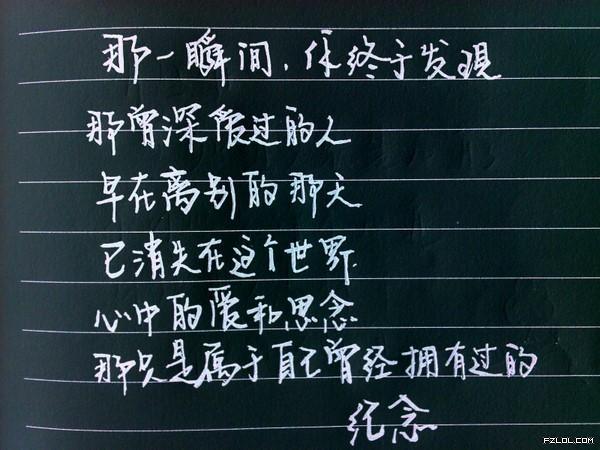 那一瞬间，你终于发現
那曾深爱过的人
早在离别的那天
已消失在这个世界.
心中的爱和思念
那只是属于自己曾经拥有过的
纪念
FZLOL.COM